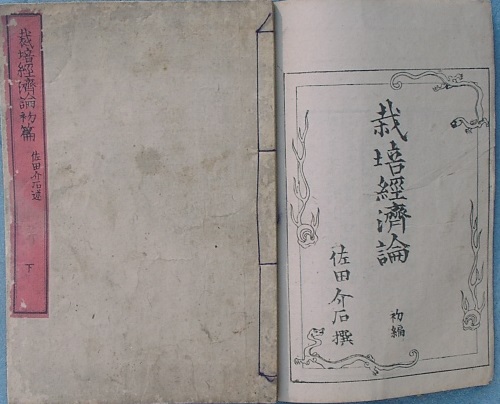 栽培經濟論初篇
佐田介石述
下
栽培經濟論
初編
佐田介石撰